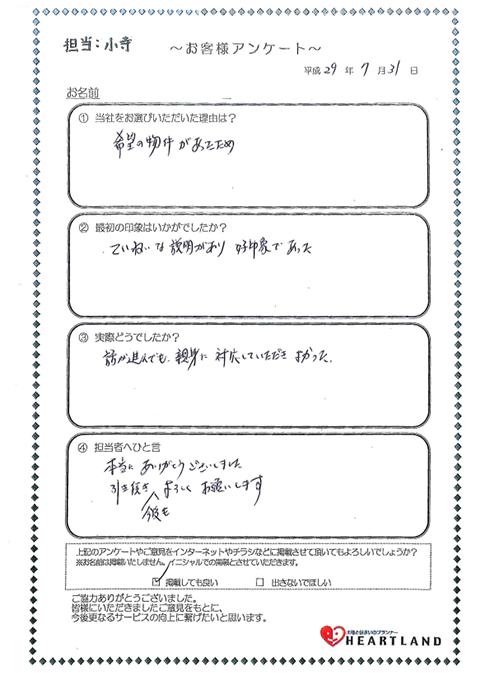 担当：小寺
～お客様アンケート～
平成 29 年 7 月 31 日
お名前
① 当社をお選びいただいた理由は？
希望の物件があったため
② 最初の印象はいかがでしたか？
ていねいな説明があり 好印象であった
③ 実際どうでしたか？
話が進んでも、親身に対応していただき よかった。
④ 担当者へひと言
本当に ありがとうございました
引き続き よろしく お願いします
今後も
上記のアンケートやご意見をインターネットやチラシなどに掲載させて頂いてもよろしいでしょうか？
※お名前は掲載いたしません。イニシャルでの掲載とさせていただきます。
☑ 掲載しても良い □ 出さないでほしい
ご協力ありがとうございました。
皆様にいただきましたご意見をもとに、
今後更なるサービスの向上に繋げたいと思います。
土地と住まいのプランナー
HEARTLAND